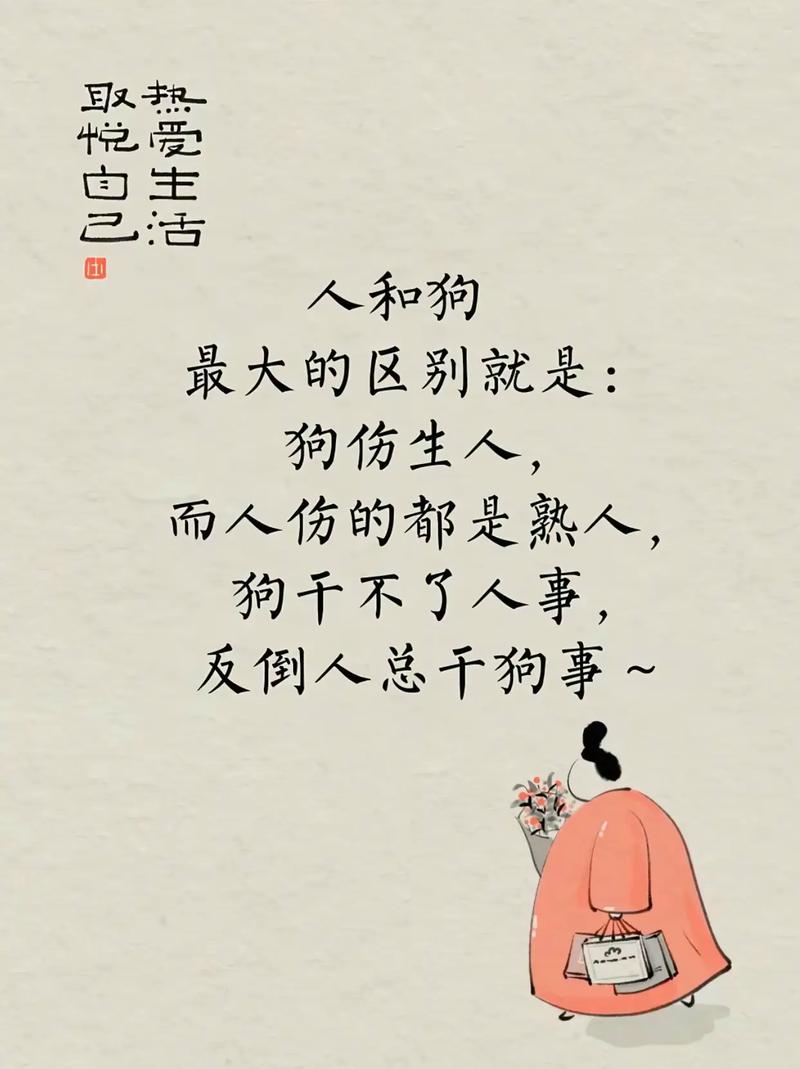 热爱生活
取悦自己
人和狗
最大的区别就是：
狗伤生人，
而人伤的都是熟人，
狗干不了人事，
反倒人总干狗事～